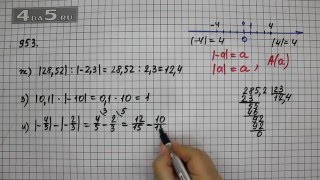 4DA5.RU
953.
-4 0 4
|-4| = 4 0 |4| = 4
|-a| = a
|a| = a , A(a)
ж) |28,52| : |-2,3| = 28,52 : 2,3 = 12,4
з) |0,1| · |-10| = 0,1 · 10 = 1
и) |-4/5| - |-2/3| = 4/5 - 2/3 = 12/15 - 10/1
285,2 | 23
23 12,4
55
46
92
92
0